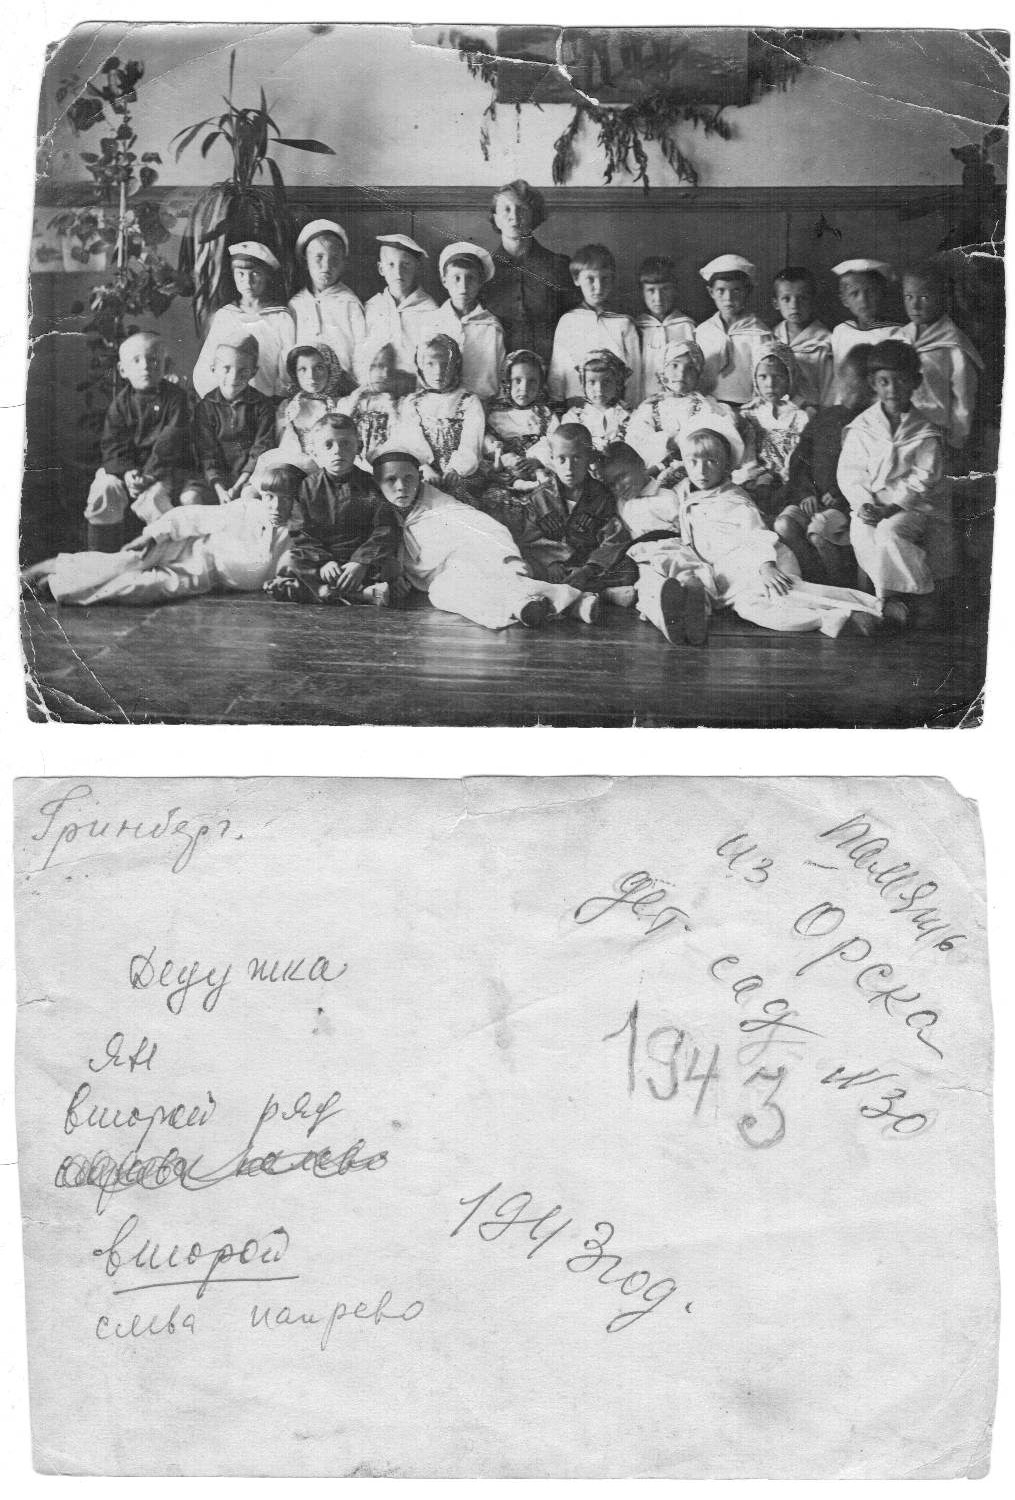 Гринберг.
Память
из Орска
дет. сад N 30
1943
Дедушка
Ян
второй ряд
справа налево
второй
слева направо
1943 год.